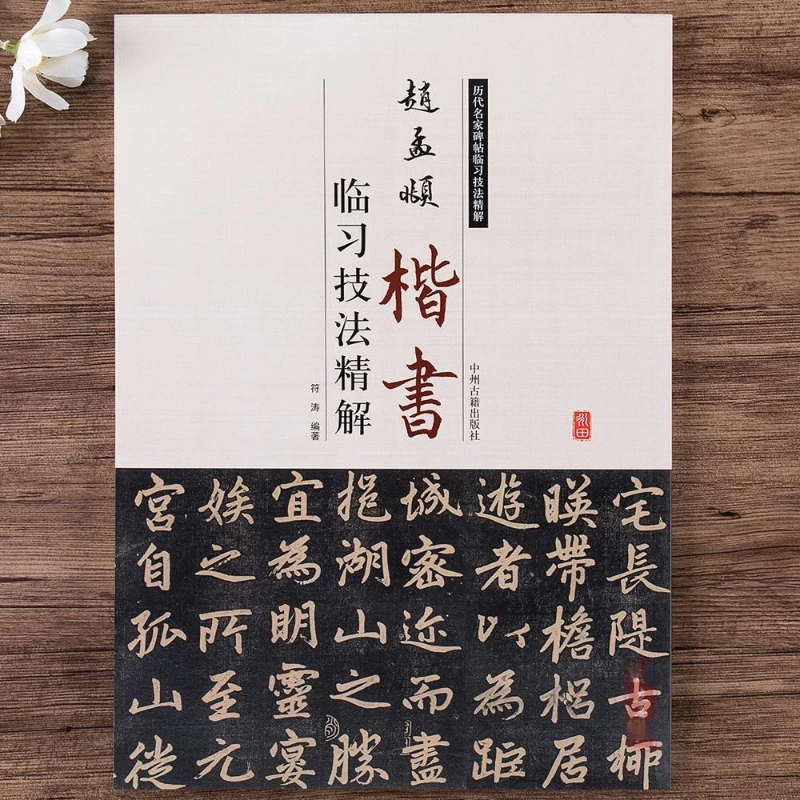 历代名家碑帖临习技法精解
趙孟頫
楷書
临习技法精解
中州古籍出版社
符涛 编著
宅長隄古柳
暎帶檐梠居
遊者以為距
城密迩而盡
挹湖山之勝
宜為明靈宴
娭之所至元
宮自孤山徙